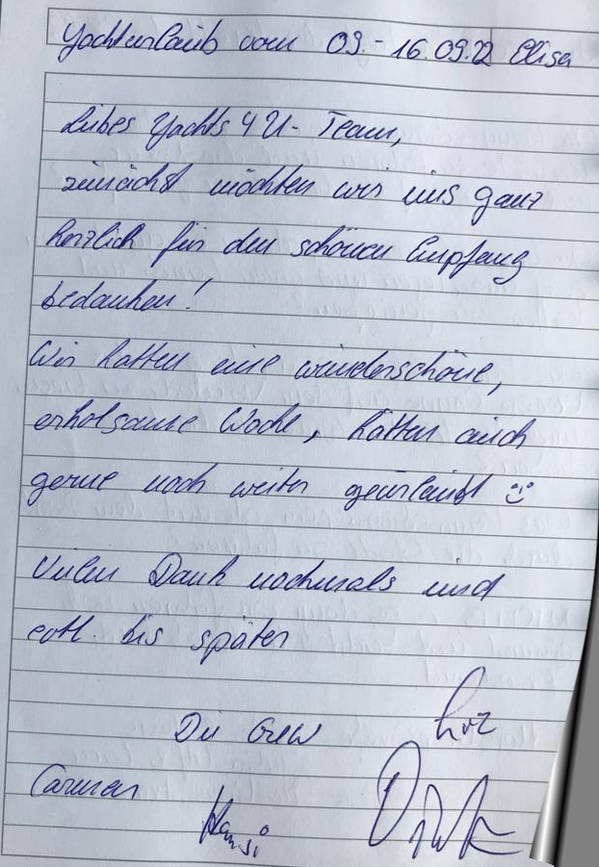 Yachturlaub vom 09.-16.09.22 Elisa
Liebes Yachts 4 U-Team,
zunächst möchten wir uns ganz
herzlich für den schönen Empfang
bedanken!
Wir hatten eine wunderschöne,
erholsame Woche, hätten auch
gerne noch weiter geurlaubt
Vielen Dank nochmals und
evtl. bis später
Die Crew
Carmen
Hansi